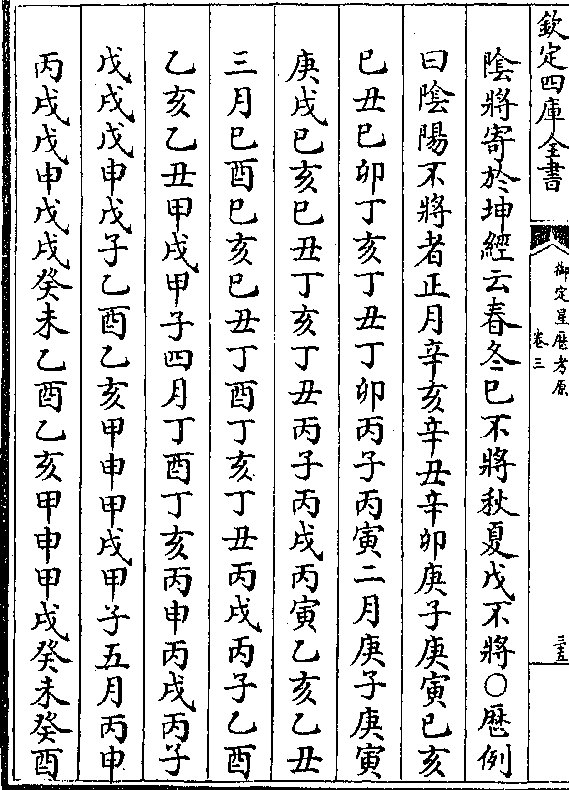 欽定四庫全書
御定星歷考原
卷三
三五
陰將寄於坤經云春冬巳不將秋夏戊不將○歷例
曰陰陽不將者正月辛亥辛丑辛卯庚子庚寅巳亥
巳丑巳卯丁亥丁丑丁卯丙子丙寅二月庚子庚寅
庚戌巳亥巳丑丁亥丁丑丙子丙戌丙寅乙亥乙丑
三月巳酉巳亥巳丑丁酉丁亥丁丑丙戌丙子乙酉
乙亥乙丑甲戌甲子四月丁酉丁亥丙申丙戌丙子
戊戌戊申戊子乙酉乙亥甲申甲戌甲子五月丙申
丙戌戊申戊戌癸未乙酉乙亥甲申甲戌癸未癸酉